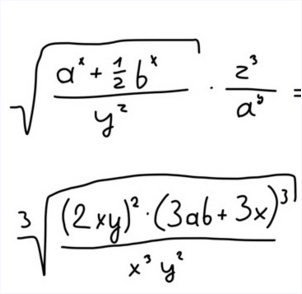 √((aˣ + ½bˣ)/y²) · z³/aʸ =
³√(((2xy)² · (3ab + 3x)³)/(x³y²))